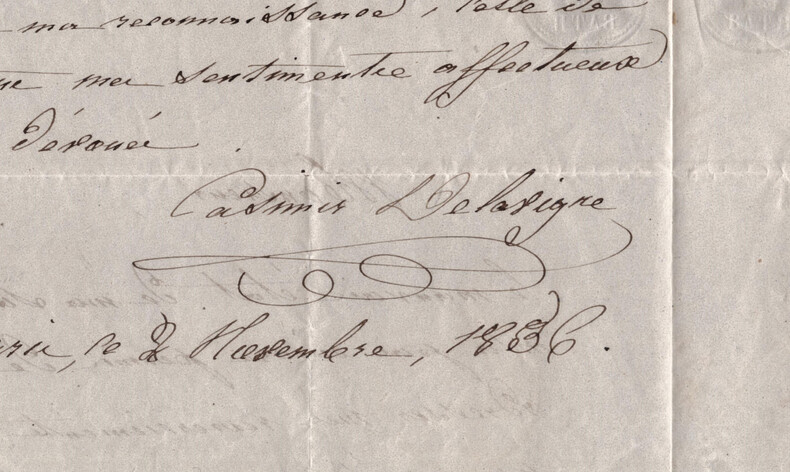 ma reconnaissance, celle de
mes sentiments affectueux
Dévoués
Casimir Delavigne
aris, le 2 Novembre, 1836.
BATH
BATH